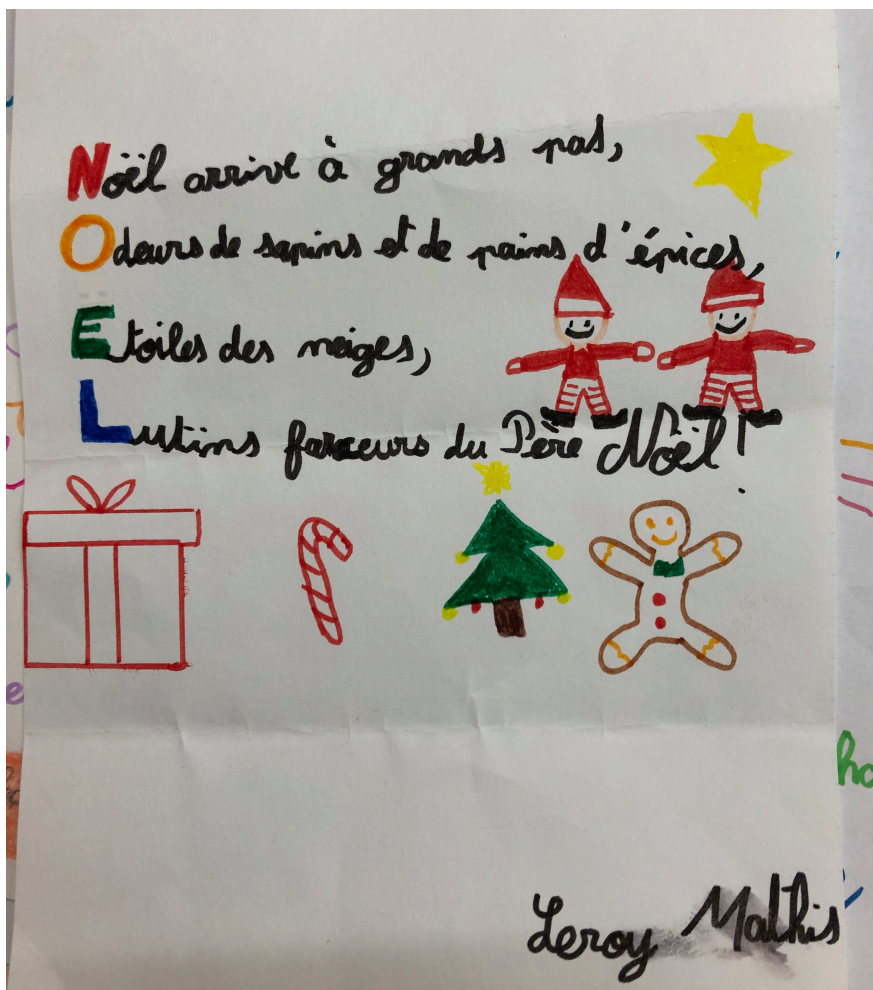 Nöël arrive à grands pas,
Odeurs de sapins et de pains d'épices,
Etoiles des neiges,
Lutins farceurs du Père Nöël !
Leroy Mathis